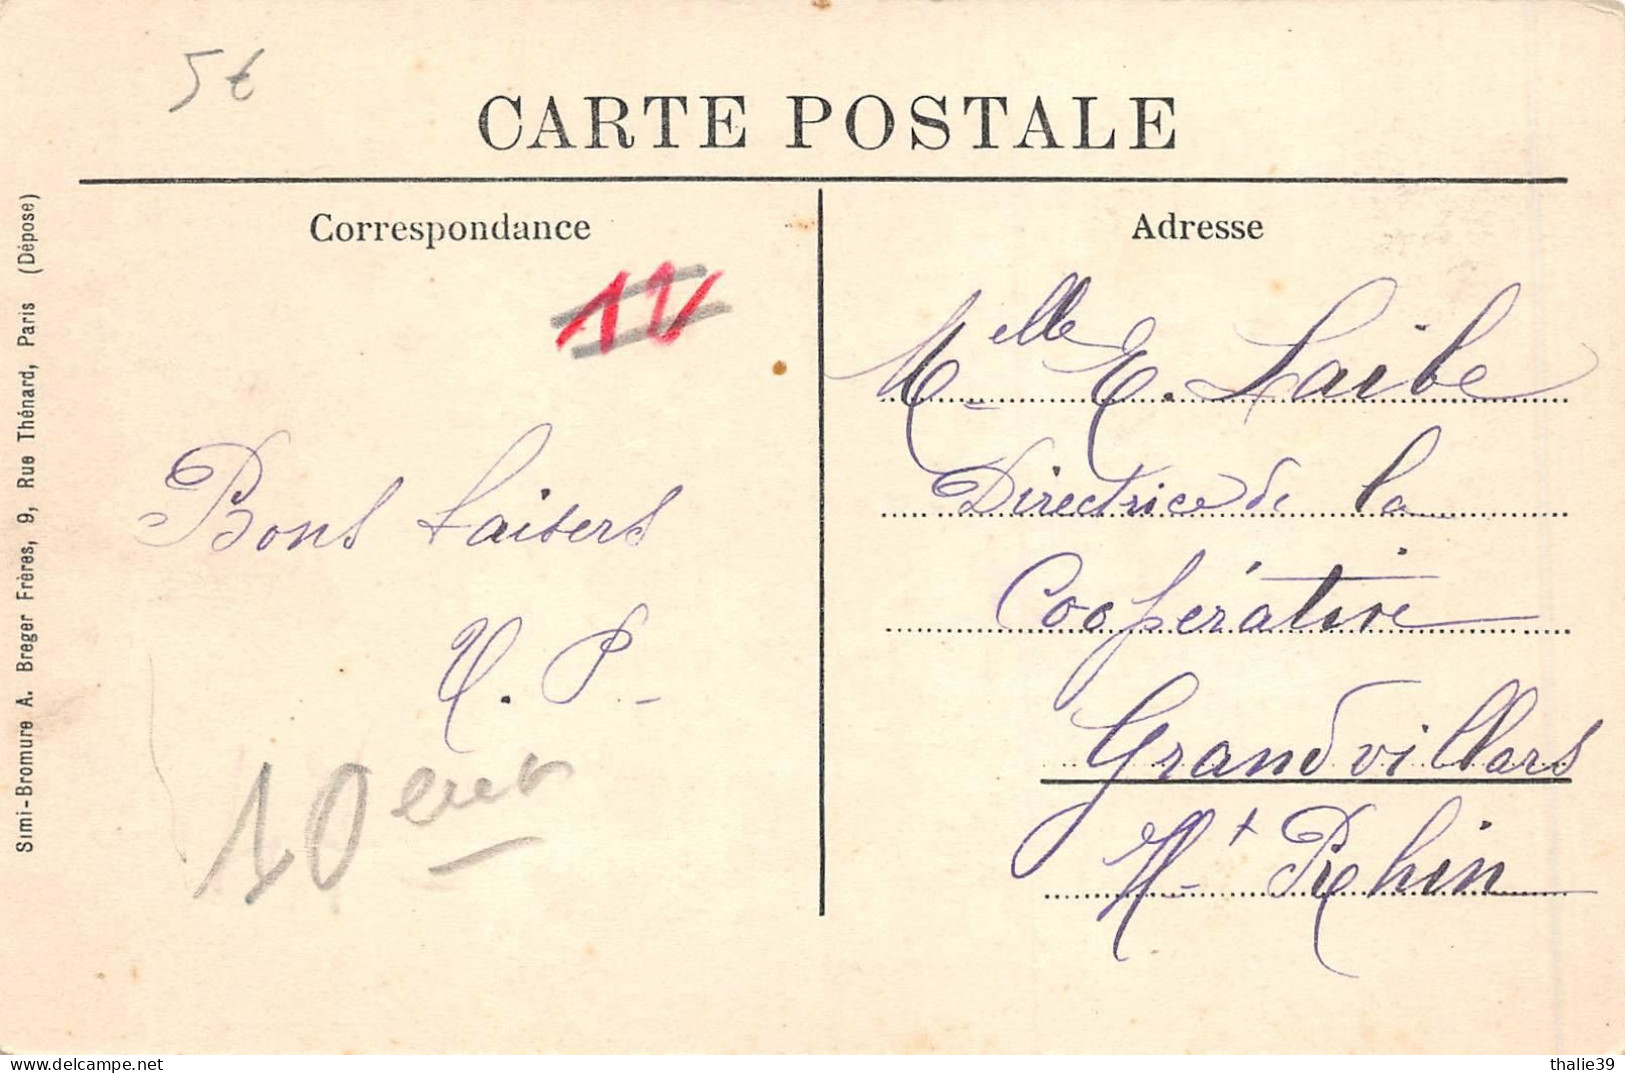 5€
CARTE POSTALE
Correspondance
Adresse
Simi-Bromure A. Breger Frères, 9, Rue Thénard, Paris (Déposé)
Melle E. Laibe
Directrice de la
Coopérative
Grandvillars
Ht Rhin
Bons baisers
P.
10
thalie39